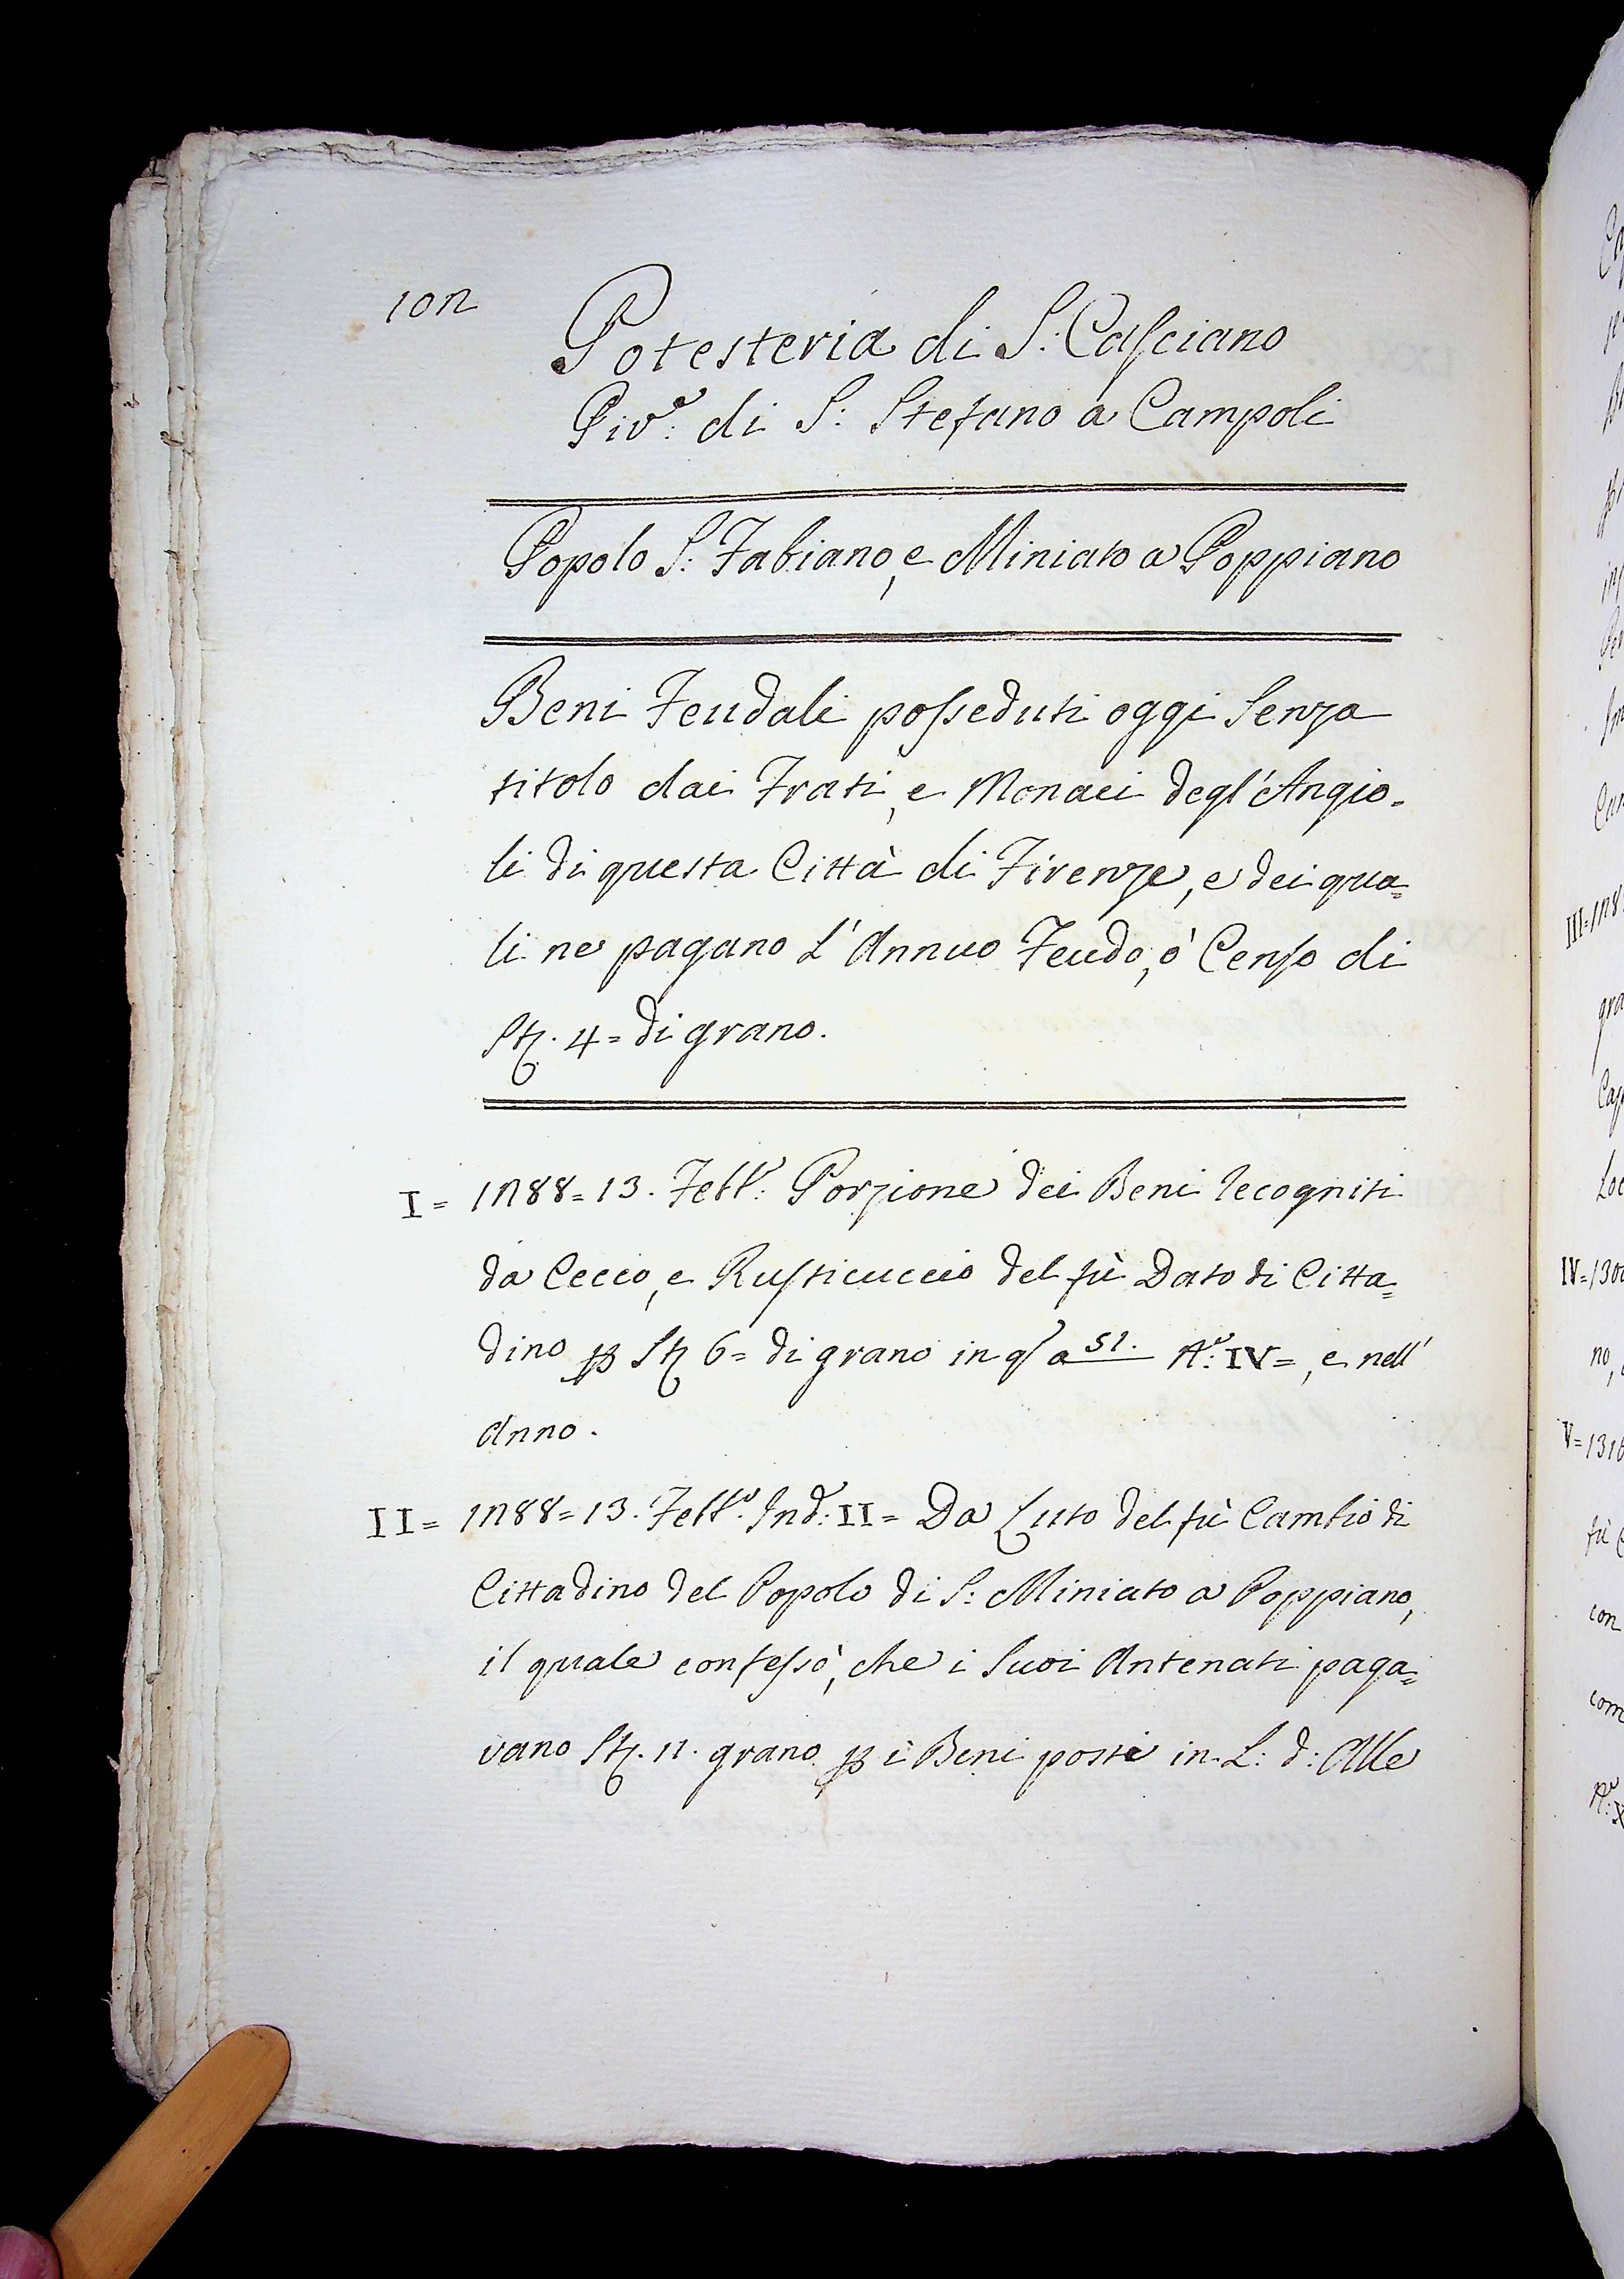 102
Potesteria di S: Casciano
Piv.e: di S: Stefano a Campoli
Popolo S: Fabiano, e Miniato a Poppiano
Beni Feudali posseduti oggi senza
titolo dai Frati, e Monaci degl' Angio-
li di questa Città di Firenze, e dei qua=
li ne pagano L'Annuo Feudo, ò Censo di
St. 4= di grano.
I= 1288= 13. Febb.o: Porzione dei Beni recogniti
da Cecco, e Rusticuccio del fù Dato di Citta=
dino p St 6= di grano in q.o a 51. N.o: IV=, e nell'
Anno.
II= 1288= 13. Febb.o: Ind: II= Da Luto del fù Cambio di
Cittadino del Popolo di S: Miniato a Poppiano,
il quale confessò, che i suoi Antenati paga=
vano St. 12. grano p i Beni posti in L: d: Alle
III= 128
gra
IV= 130
no,
V= 131
fù
con
com